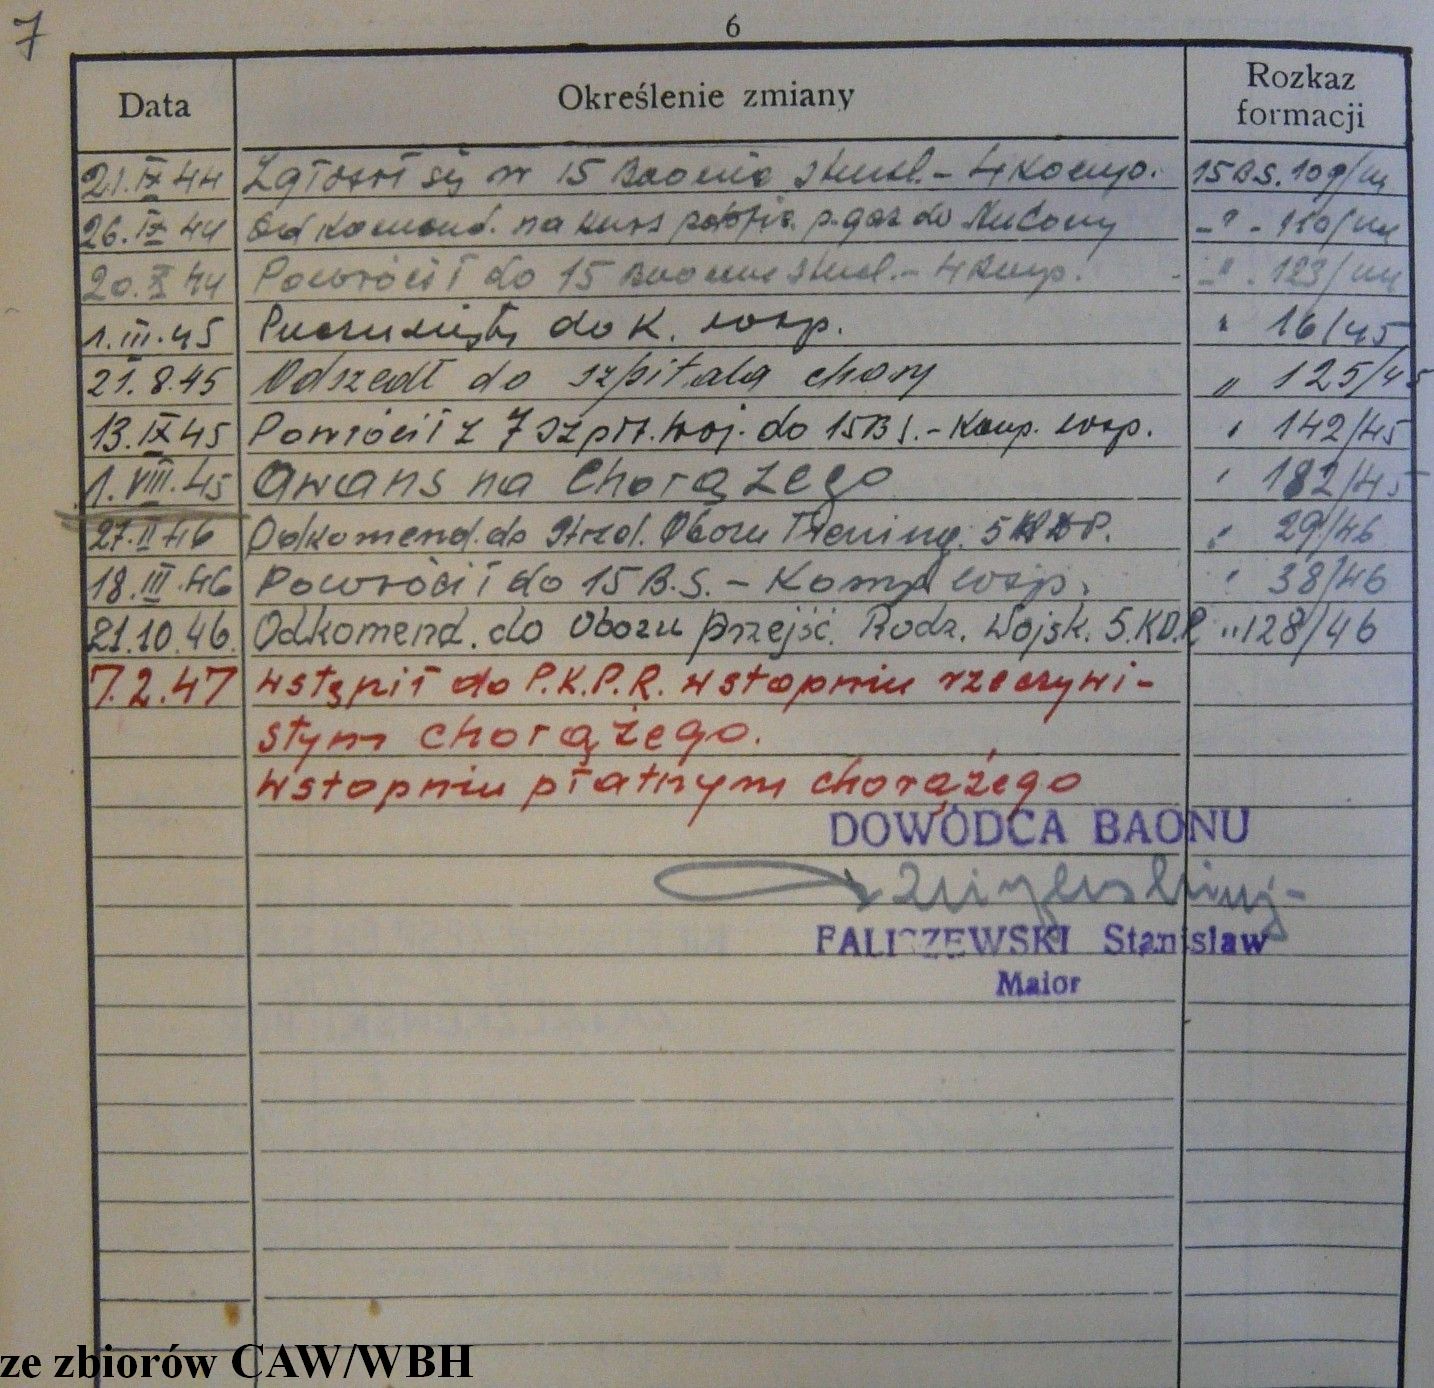 7
6
Data Określenie zmiany Rozkaz formacji
21.IX 44 Zgłosił się w 15 Baonie Strzel. - 4 Komp. 15 B.S. 109/44
26.IX 44 Odkomend. na kurs p. gaz do -"- 110/44
20.X 44 Powrócił do 15 Baonu Strzel. - 4 Komp. -"- 123/44
1.III.45 Przesunięty do K. wsp. " 16/45
21.8.45 Odszedł do szpitala chory " 125/45
13.IX 45 Powrócił z 7 Szpit. Woj. do 15 B S. - Komp. wsp. " 142/45
1.VIII.45 Awans na Chorążego " 182/45
27.II 46 Odkomend. do Strzel. Obozu Trening. 5 KDP. " 29/46
18.III.46 Powrócił do 15 B.S. - Komp wsp. " 38/46
21.10.46. Odkomend. do Obozu przejść. Rodz. Wojsk. 5.K.D.P. " 128/46
7.2.47 wstąpił do P.K.P.R. w stopniu rzeczywi-
stym chorążego.
w stopniu płatnym chorążego
DOWÓDCA BAONU
FALISZEWSKI Stanisław
Major
ze zbiorów CAW/WBH